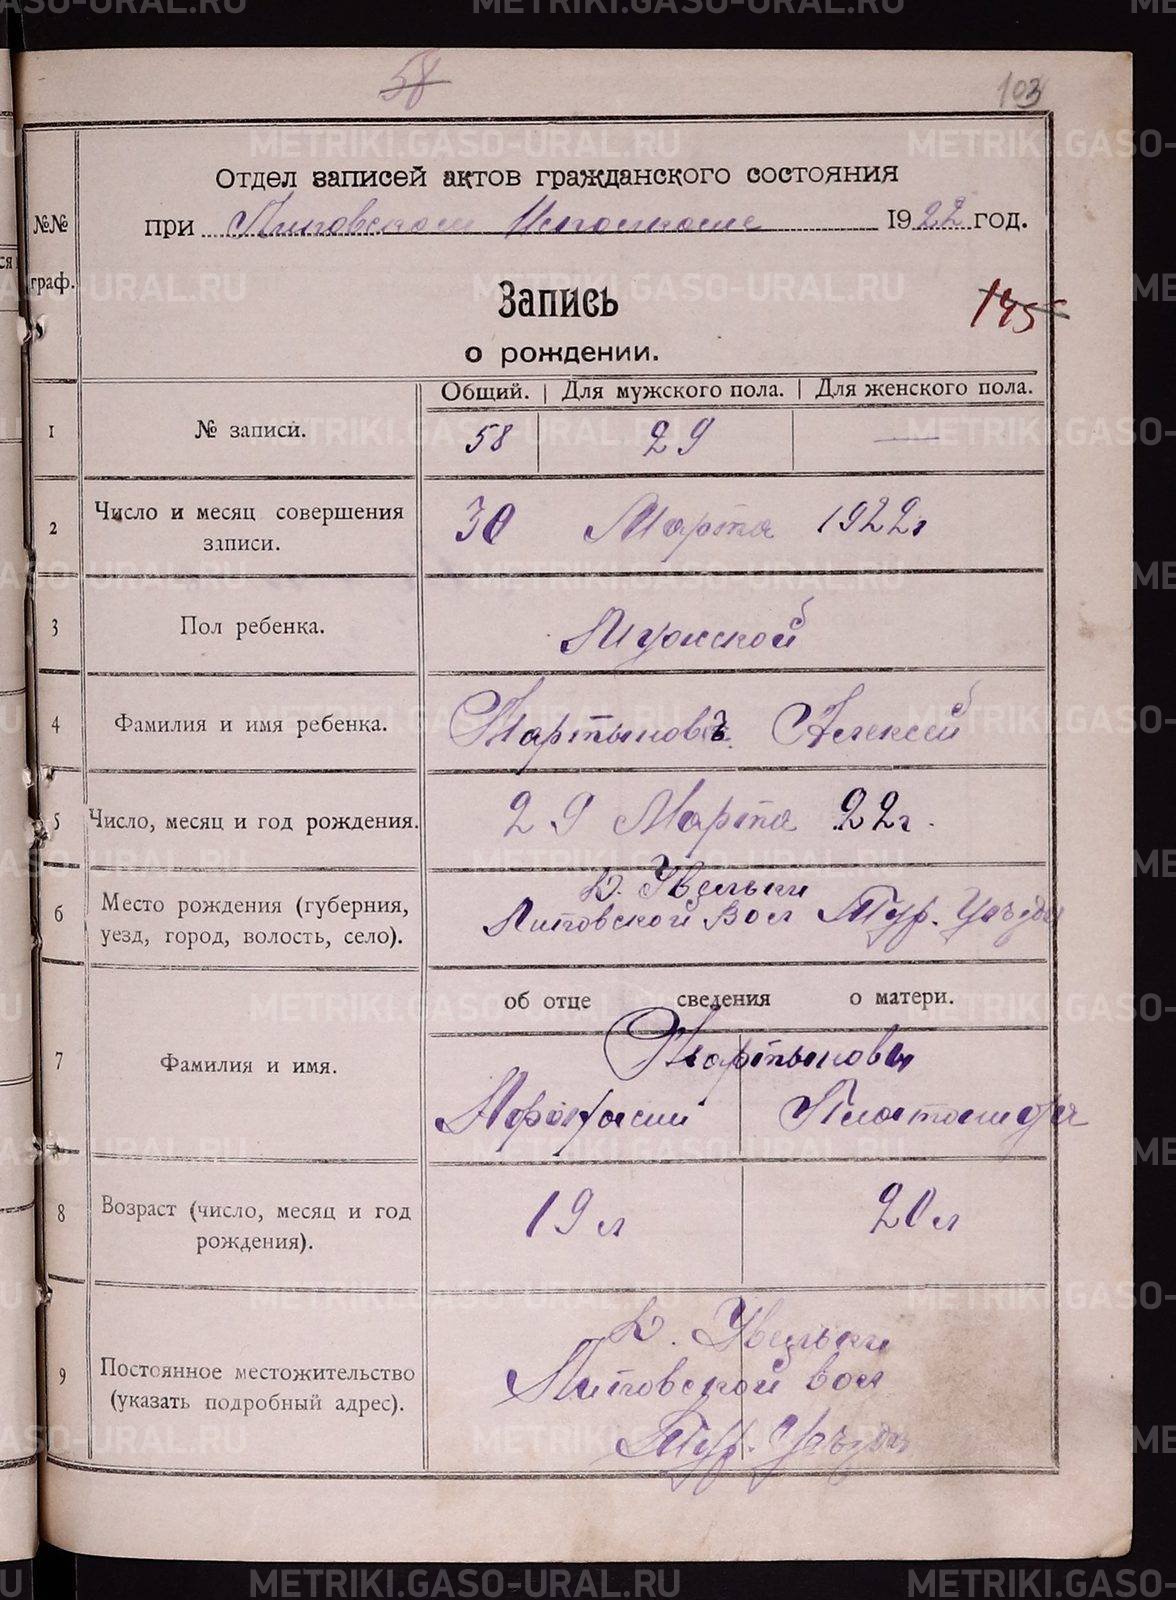 58
103
Отдел записей актов гражданского состояния
при Липовском Исполкоме 1922 год.
№№
граф.
Запись
о рождении.
145
Общий. Для мужского пола. Для женского пола.
1 № записи. 58 29 —
2 Число и месяц совершения записи. 30 Марта 1922 г
3 Пол ребенка. Мужской
4 Фамилия и имя ребенка. Мартыновъ Алексей
5 Число, месяц и год рождения. 29 Марта 22 г.
6 Место рождения (губерния, уезд, город, волость, село). Д.
Липовской Вол Тур. Уѣзда
об отце сведения о матери.
7 Фамилия и имя. Мартыновы
Афонасий
8 Возраст (число, месяц и год рождения). 19 л 20 л
9 Постоянное местожительство (указать подробный адрес). Д.
Липовской вол
Тур. Уѣзда
METRIKI.GASO-URAL.RU